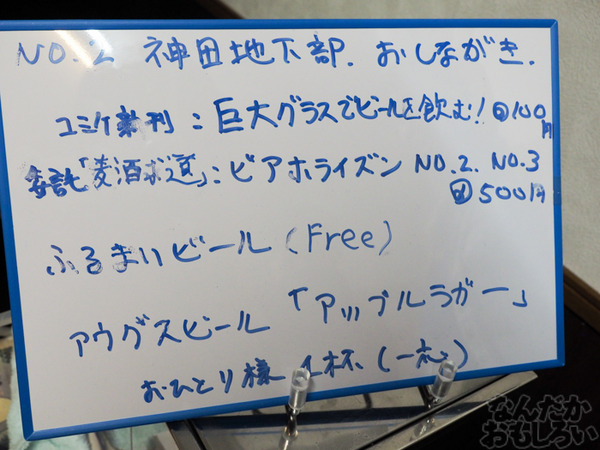 NO.2 神田地下部. おしながき.
コミケ新刊:巨大グラスでビールを飲む! @100円
委託「麦酒求道」:ビアホライズン NO.2. NO.3
@500円
ふるまいビール(Free)
アウグスビール 「アップルラガー」
おひとり様 1杯(一応)
なんだか
おもしろい